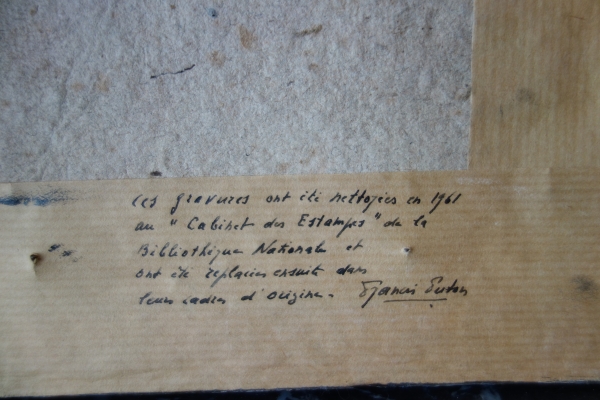 Ces gravures ont été nettoyées en 1961
au "Cabinet des Estampes" de la
Bibliothèque Nationale et
ont été replacées ensuite dans
leurs cadres d'origine. Francis